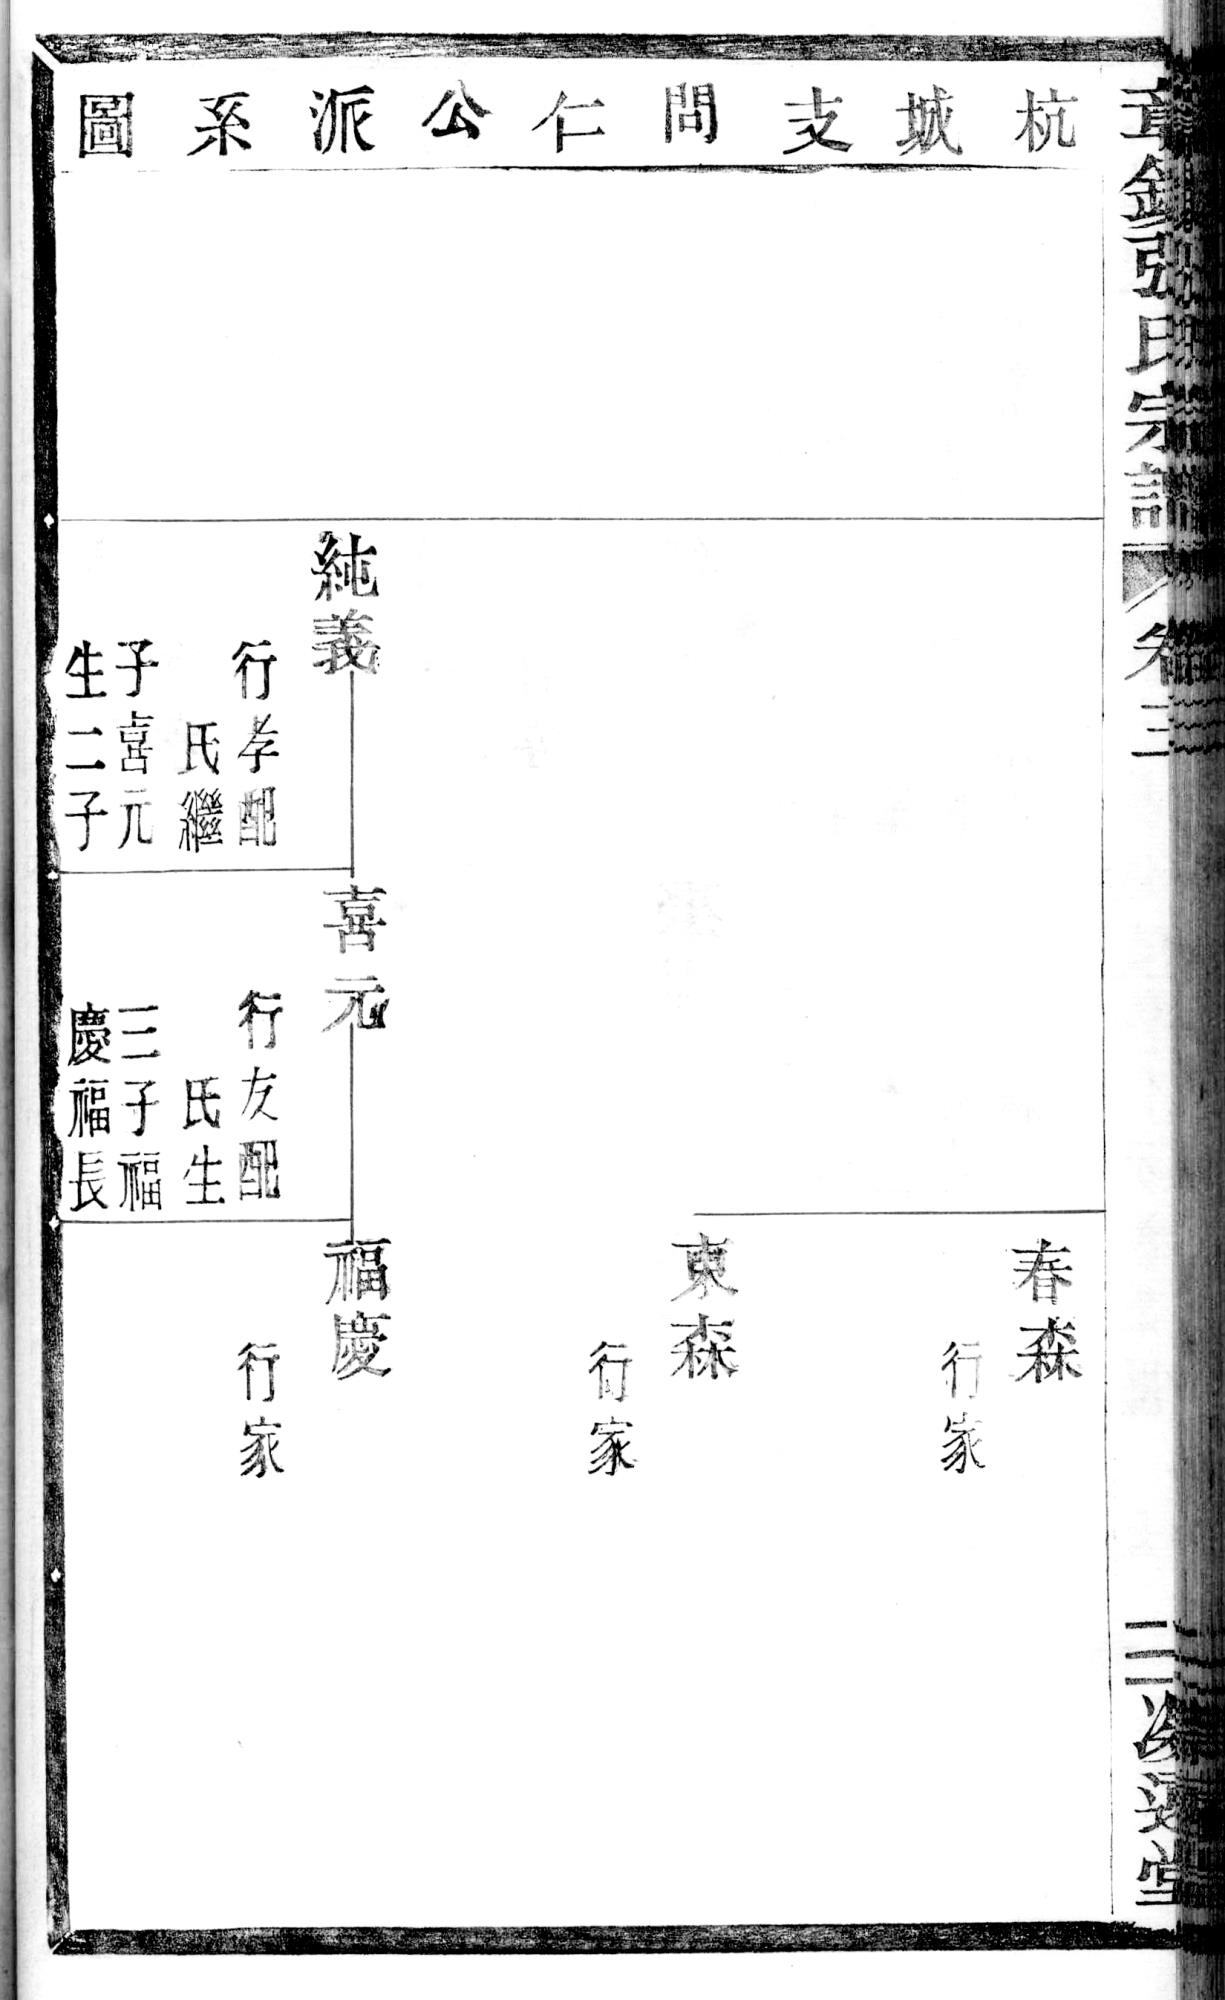 張氏宗譜
卷三
杭城支問仁公派系圖
春森
行家
東森
行家
純義
行孝配
氏繼
子喜元
生二子
喜元
行友配
氏生
三子福
慶福長
福慶
行家